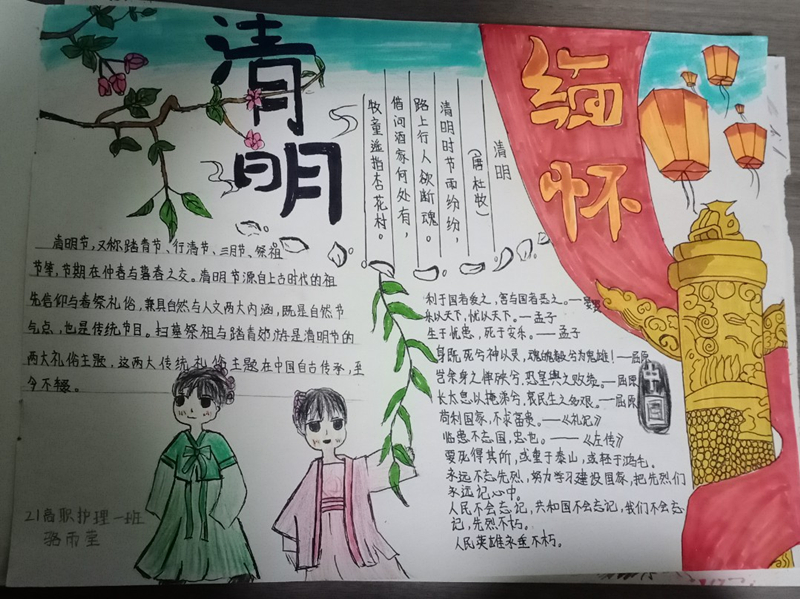 清明
缅怀
清明
(唐杜牧)
清明时节雨纷纷，
路上行人欲断魂。
借问酒家何处有，
牧童遥指杏花村。
清明节，又称踏青节、行清节、三月节、祭祖
节等，节期在仲春与暮春之交。清明节源自上古时代的祖
先信仰与春祭礼俗，兼具自然与人文两大内涵，既是自然节
气点，也是传统节日。扫墓祭祖与踏青郊游是清明节的
两大礼俗主题，这两大传统礼俗主题在中国自古传承，至
今不辍。
利于国者爱之，害与国者恶之。—晏婴
乐以天下，忧以天下。—孟子
生于忧患，死于安乐。—孟子
身既死兮神以灵，魂魄毅兮为鬼雄！—屈原
岂余身之惮殃兮，恐皇舆之败绩。—屈原
长太息以掩涕兮，哀民生之多艰。—屈原
苟利国家，不求富贵。—《礼记》
临患不忘国，忠也。——《左传》
要死得其所，或重于泰山，或轻于鸿毛。
永远不忘先烈，努力学习建设国家，把先烈们
永远记心中。
人民不会忘记，共和国不会忘记，我们不会忘
记，先烈不朽。
人民英雄永垂不朽。
21高职护理一班
骆雨童